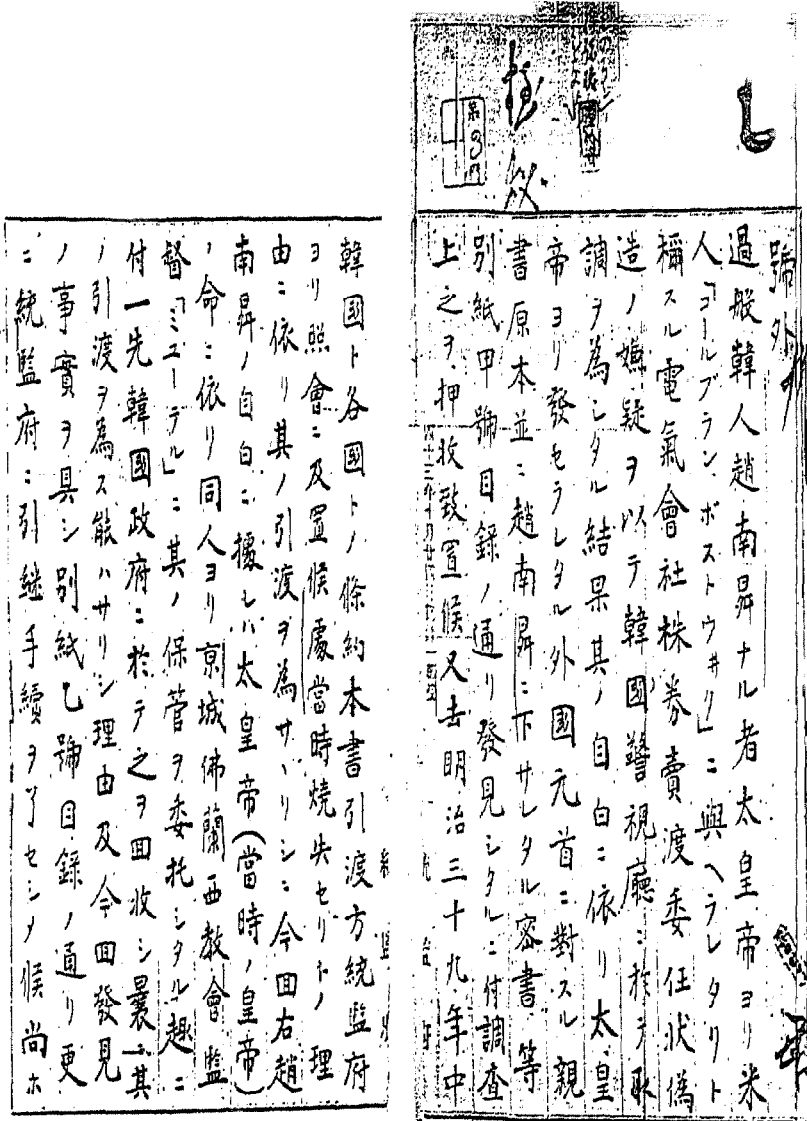 號外
過般韓人趙南昇ナル者太皇帝ヨリ米
人「コールブラン、ボストウヰク」ニ與ヘラレタリト
稱スル電氣會社株券賣渡委任狀僞
造ノ嫌疑ヲ以テ韓國警視廳ニ於テ取
調ヲ為シタル結果其ノ自白ニ依リ太皇
帝ヨリ發セラレタル外國元首ニ對スル親
書原本並ニ趙南昇ニ下サレタル密書等
別紙甲號目錄ノ通リ發見シタルニ付調査
上之ヲ押收致置候又去明治三十九年中
韓國ト各國トノ條約本書引渡方統監府
ヨリ照會ニ及置候處當時燒失セリトノ理
由ニ依リ其ノ引渡ヲ為サヽリシニ今回右趙
南昇ノ自白ニ據レハ太皇帝(當時ノ皇帝)
ノ命ニ依リ同人ヨリ京城佛蘭西教會監
督「ミユーテル」ニ其ノ保管ヲ委托シタル趣ニ
付一先韓國政府ニ於テ之ヲ回收シ曩ニ其
ノ引渡ヲ為ス能ハサリシ理由及今回發見
ノ事實ヲ具シ別紙乙號目錄ノ通リ更
ニ統監府ニ引繼手續ヲ了セシメ候尚ホ